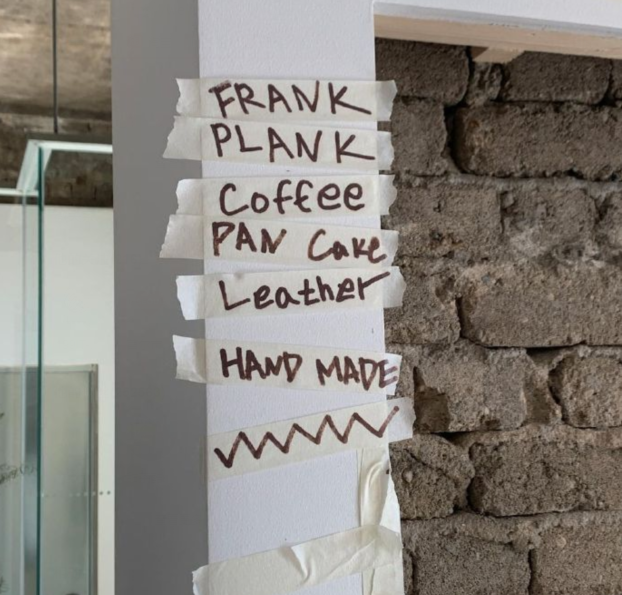 FRANK
PLANK
Coffee
PAN Cake
Leather
HAND MADE